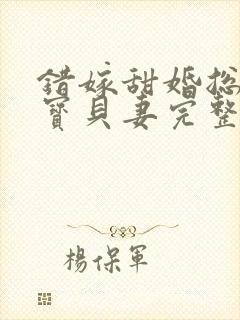 错嫁甜婚总
寶貝妻完整
楊保軍